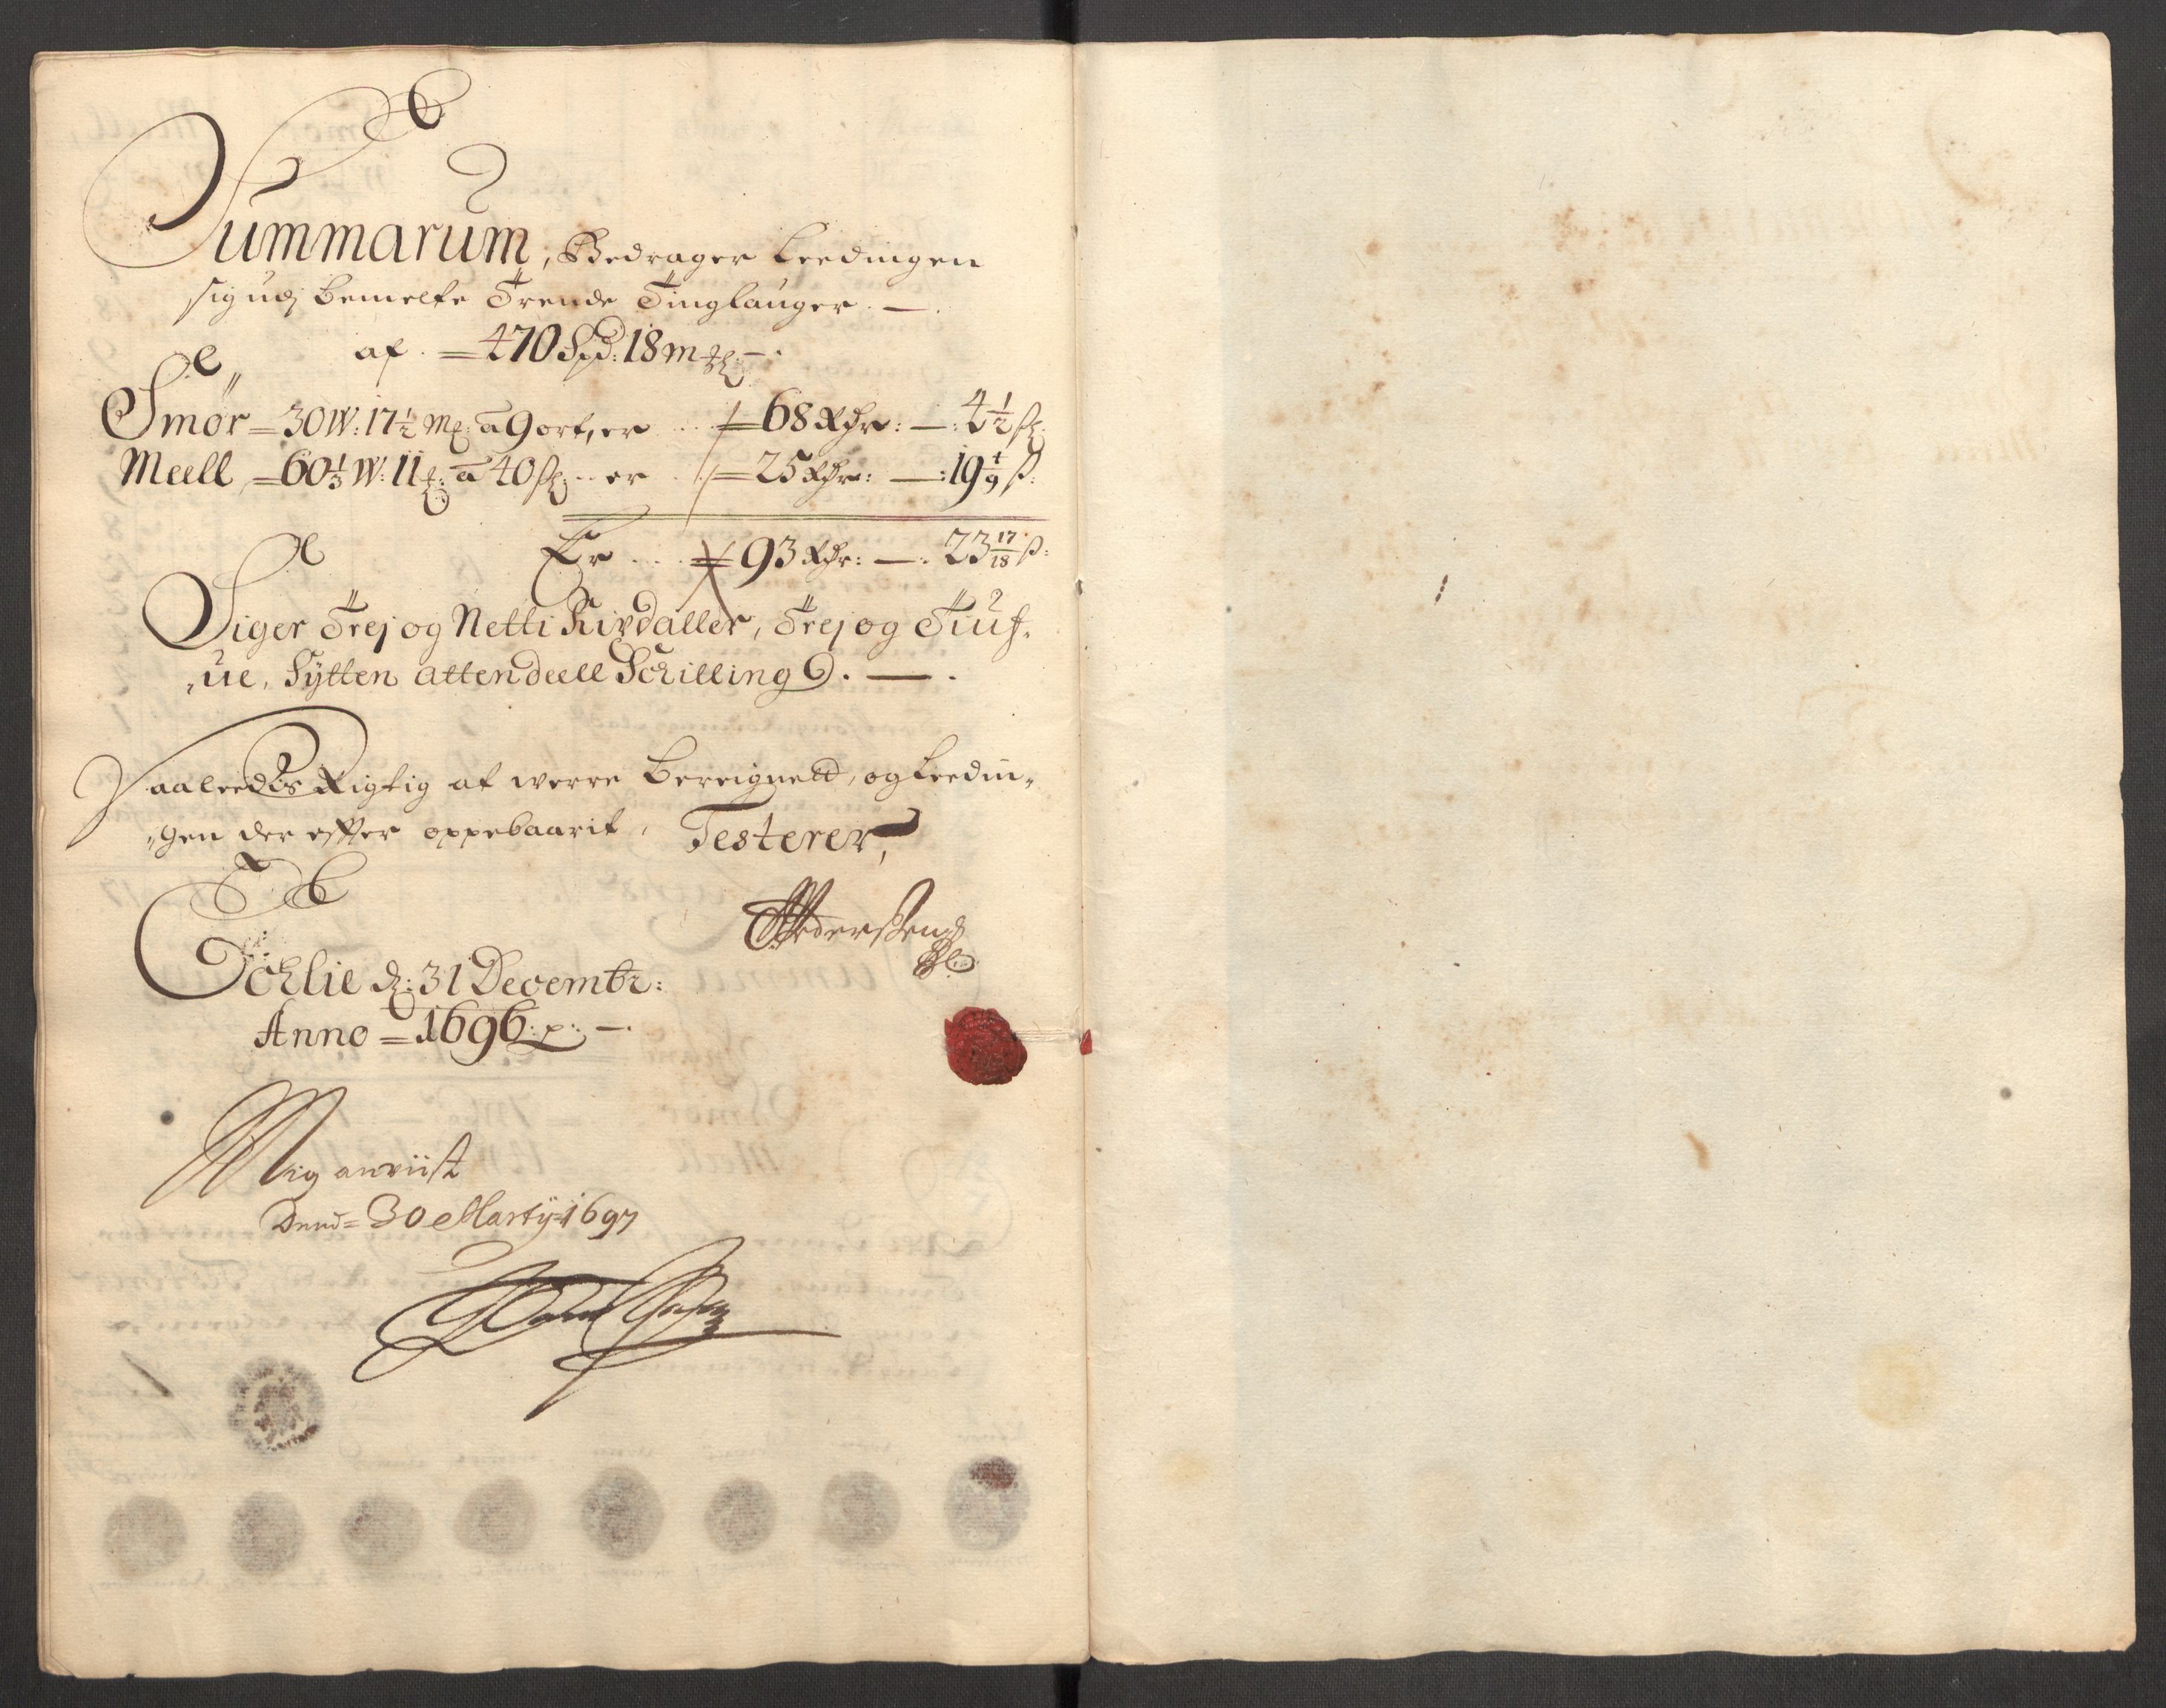 Summarum, Bedrager Leedingen
sig udj bemelte Trende Tinglauger. —.
af. = 470 Spd: 18 mk —.
Smør = 30 W: 17½ mk: a 9 ort, er . . = 68 Rdr: — : 4½ s
Meell = 60⅓ W: 11 a 40 s .. er . = 25 Rdr: — : 19 4/9 s:
Er . . . = 93 Rdr: — : 23 17/18 s:
Siger Trej og Netti Rixdaller, Trej og Tiuf-
,ue, Sytten attendeell Schilling. — .
Saaleedis Rigtig at werre bereignett, og Leedin-
,gen der effter oppebaarit, Testerer,
Pedersen
d: 31 Decembr:
Anno = 1696: —.
Mig anviist
Dend = 30 Martij 1697